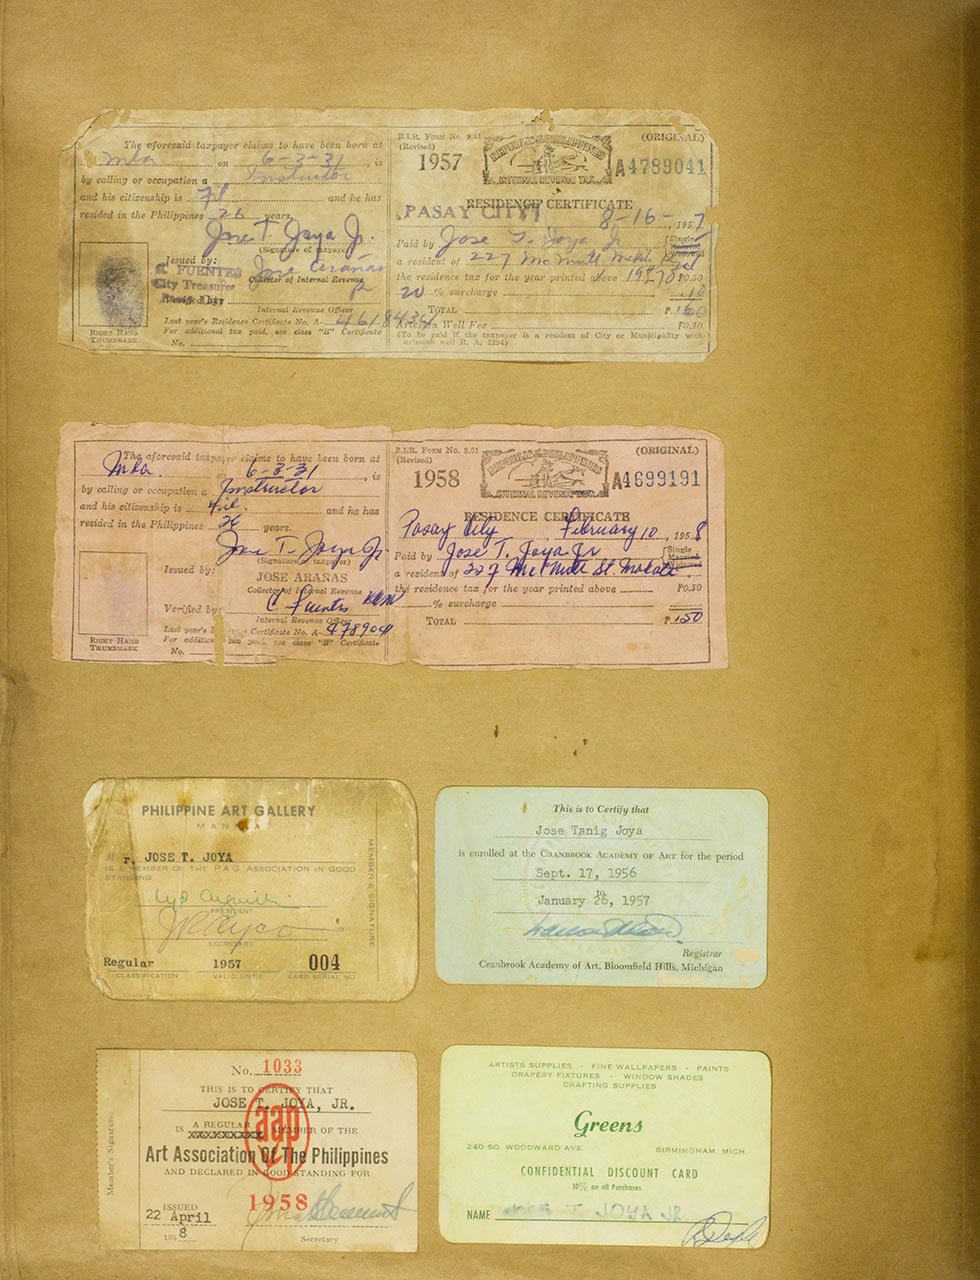 The aforesaid taxpayer claims to have been born at
Mla on 6-3-31, is
by calling or occupation a Instructor
and his citizenship is Fil and he has
resided in the Philippines 26 years.
Jose T. Joya Jr.
(Signature of taxpayer)
Issued by: Jose Arañas
C. FUENTES
City Treasurer
Collector of Internal Revenue
Internal Revenue Officer
Last year's Residence Certificate No. A-4618434
For additional tax paid, see class "B" Certificate
No.
RIGHT HAND
THUMBMARK
B.I.R. FORM No. 9.01
(Revised)
1957
REPUBLIC OF THE PHILIPPINES
INTERNAL REVENUE TAX
(ORIGINAL)
A4789041
RESIDENCE CERTIFICATE
PASAY CITY 8-16-, 1957
Paid by Jose T. Joya Jr {Single
a resident of 227 Mc
the residence tax for the year printed above P0.50
20 % surcharge .10
TOTAL P .60
Artesian Well Fee P0.10
(To be paid if the taxpayer is a resident of City or Municipality with
artesian well R. A. 1294)
The aforesaid taxpayer claims to have been born at
Mla. on 6-3-31, is
by calling or occupation a Instructor
and his citizenship is Fil. and he has
resided in the Philippines 26 years.
Jose T. Joya Jr
(Signature of taxpayer)
Issued by: JOSE ARAÑAS
Collector of Internal Revenue
Verified by: C Fuentes
Internal Revenue Officer
Last year's Residence Certificate No. A-4789041
For additional tax paid, see class "B" Certificate
No.
RIGHT HAND
THUMBMARK
B.I.R. FORM No. 9.01
(Revised)
1958
REPUBLIC OF THE PHILIPPINES
INTERNAL REVENUE TAX
(ORIGINAL)
A4699191
RESIDENCE CERTIFICATE
Pasay City, February 10, 1958
Paid by Jose T. Joya Jr {Single Married Widowed
a resident of 227 Mc St. Makati
the residence tax for the year printed above P0.50
% surcharge
TOTAL P .50
PHILIPPINE ART GALLERY
MANILA
Mr. JOSE T. JOYA
IS A MEMBER OF THE PAG ASSOCIATION IN GOOD
STANDING
PRESIDENT
SECRETARY
Regular 1957 004
CLASSIFICATION VALID UNTIL CARD SERIAL NO
MEMBER'S SIGNATURE
This is to Certify that
Jose Tanig Joya
is enrolled at the CRANBROOK ACADEMY OF ART for the period
Sept. 17, 1956
to
January 26, 1957
Registrar
Cranbrook Academy of Art, Bloomfield Hills, Michigan
Member's Signature:
No. 1033
THIS IS TO CERTIFY THAT
JOSE T. JOYA, JR.
IS A REGULAR MEMBER OF THE
aap
Art Association Of The Philippines
AND DECLARED IN GOOD STANDING FOR
1958
ISSUED
22 April
1958
Secretary
ARTISTS SUPPLIES - FINE WALLPAPERS - PAINTS
DRAPERY FIXTURES - WINDOW SHADES
DRAFTING SUPPLIES
Greens
240 SO. WOODWARD AVE. BIRMINGHAM, MICH.
CONFIDENTIAL DISCOUNT CARD
10% on all Purchases
NAME JOSE T JOYA JR